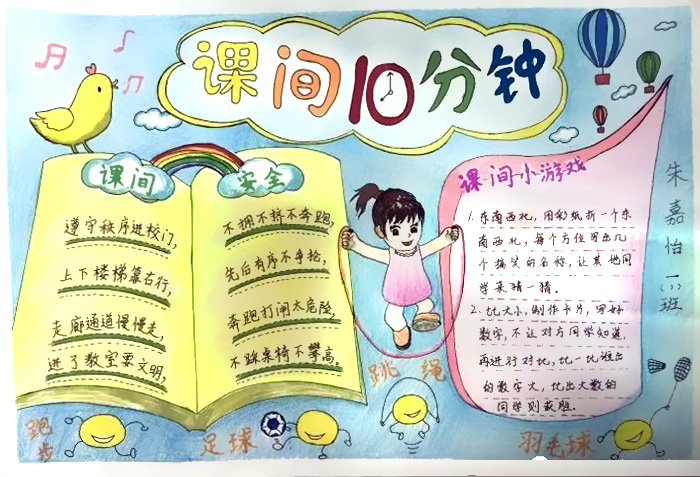 课间10分钟
课间
遵守秩序进校门,
上下楼梯靠右行,
走廊通道慢慢走,
进了教室要文明,
安全
不拥不挤不奔跑,
先后有序不争抢,
奔跑打闹太危险,
不踩桌椅不攀高。
课间小游戏
1.东南西北,用彩纸折一个东
南西北,每个方位写出几
个搞笑的名称,让其他同
学来猜一猜。
2.比大小,制作卡片,写好
数字,不让对方同学知道,
再进行对比,比一比谁出
的数字大,比出大数的
同学则获胜。
朱嘉怡 一(1)班
跳绳
跑步
足球
羽毛球